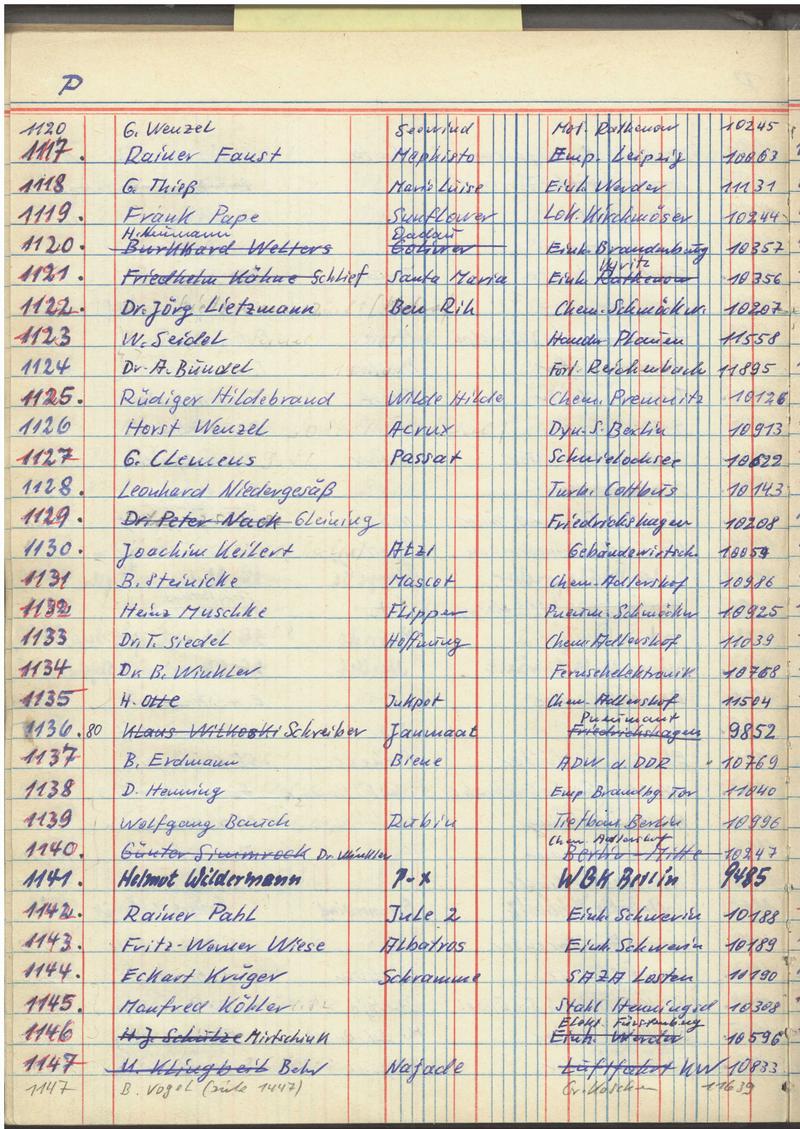 P
1120 G. Wenzel Seewind Mot. Rathenow 10245
1117. Rainer Faust Mephisto Emp. Leipzig 10063
1118 G. Thieß Marie Luise Einh. Werder 11131
1119. Frank Pape Sunflower Lok. Kirchmöser 10244
H. Neumann Dadau
1120. Burkhard Welters Einh. Brandenburg 10357
Kyritz
1121. Friedhelm Köhne Schlief Santa Maria Einh. Rathenow 10356
1122. Dr. Jörg Lietzmann Ben Rih Chem. Schmöckw. 10207
1123 W. Seidel Plauen 11558
1124 Dr. A. Bündel Fort. Reichenbach 11895
1125. Rüdiger Hildebrand Wilde Hilde Chem. Premnitz 10126
1126 Horst Wenzel Acrux Dyn. S. Berlin 10913
1127 G. Clemens Passat Schwielochsee 10622
1128. Leonhard Niedergesäß Turb. Cottbus 10143
1129. Dr. Peter Nack Gleining Friedrichshagen 10208
1130. Joachim Keilert Atzi Gebäudewirtsch. 10054
1131 B. Steinicke Mascot Chem. Adlershof 10986
1132 Heinz Muschke Flipper Pneum. Schmöckw 10925
1133 Dr. T. Siedel Hoffnung Chem. Adlershof 11039
1134 Dr. B. Winkler Fernsehelektronik 10768
1135 H. Otte Inkpot Chem. Adlershof 11504
Pneumant
1136. 80 Klaus Witkoski Schreiber Janmaat Friedrichshagen 9852
1137 B. Erdmann Biene ADW d. DDR 10769
1138 D. Henning Emp. Brandbg. Tor 11040
1139 Wolfgang Bauch Rubin Tiefbau Berlin 10996
Chem. Adlershof
1140. Günter Simmrock Dr. Winkler Berlin-Mitte 10247
1141. Helmut Wildermann P-X WGK Berlin 9485
1142. Rainer Pahl Jule 2 Einh. Schwerin 10188
1143. Fritz-Werner Wiese Albatros Einh. Schwerin 10189
1144. Eckart Krüger Schramme SAZA Losten 10190
1145. Manfred Köhler Stahl Hennigsd 10308
Elekt. Fürstenberg
1146 H.J. Schütze Mirtschink Einh. Werder 10596
1147 U. Klingbeil Behr Najade Luftfahrt KW 10833
1147 B. Vogel (siehe 1447) Gr. Koschen 11639